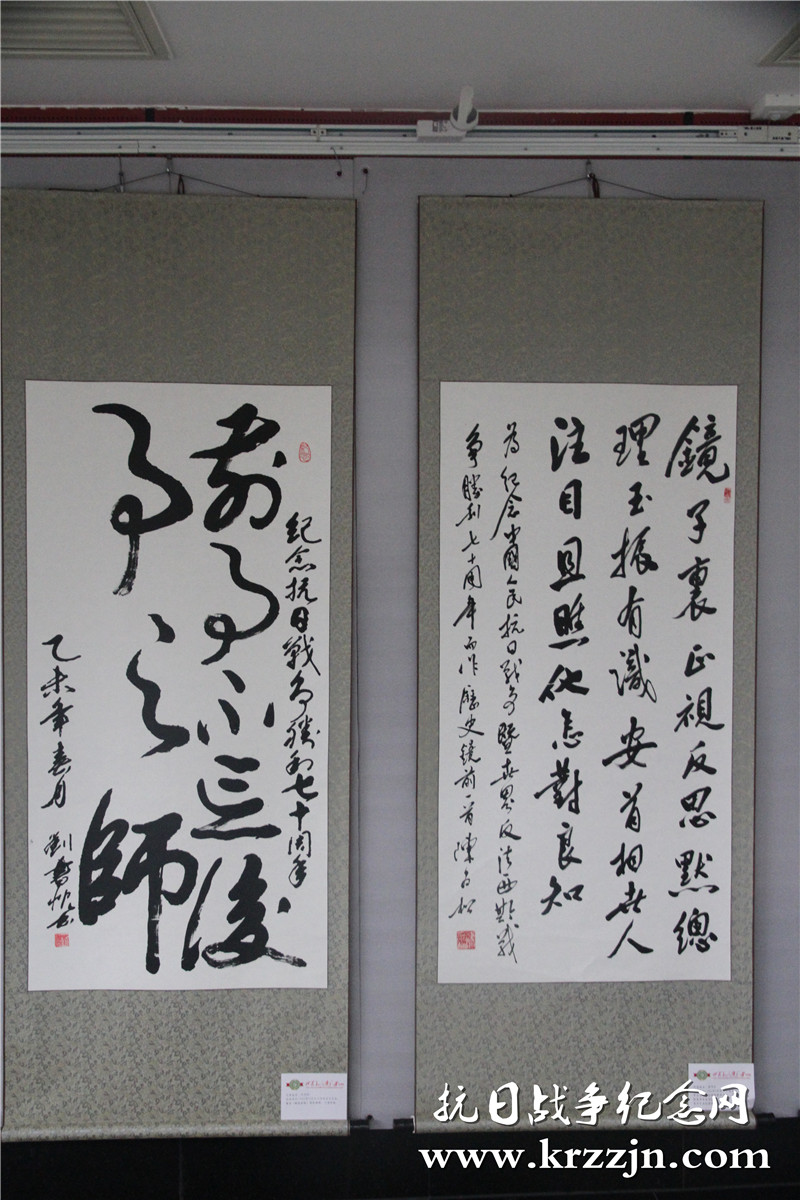 鏡子裏正視反思默總
理玉振有識安首相世人
注目且瞧他怎對良知
为纪念中國人民抗日战争暨世界反法西斯战
争勝利七十周年而作歷史鏡前一首陳
紀念抗日戰争勝利七十周年
前事不忘後
事之師
乙未年春月
劉書
抗日战争纪念网
www.krzzjn.com